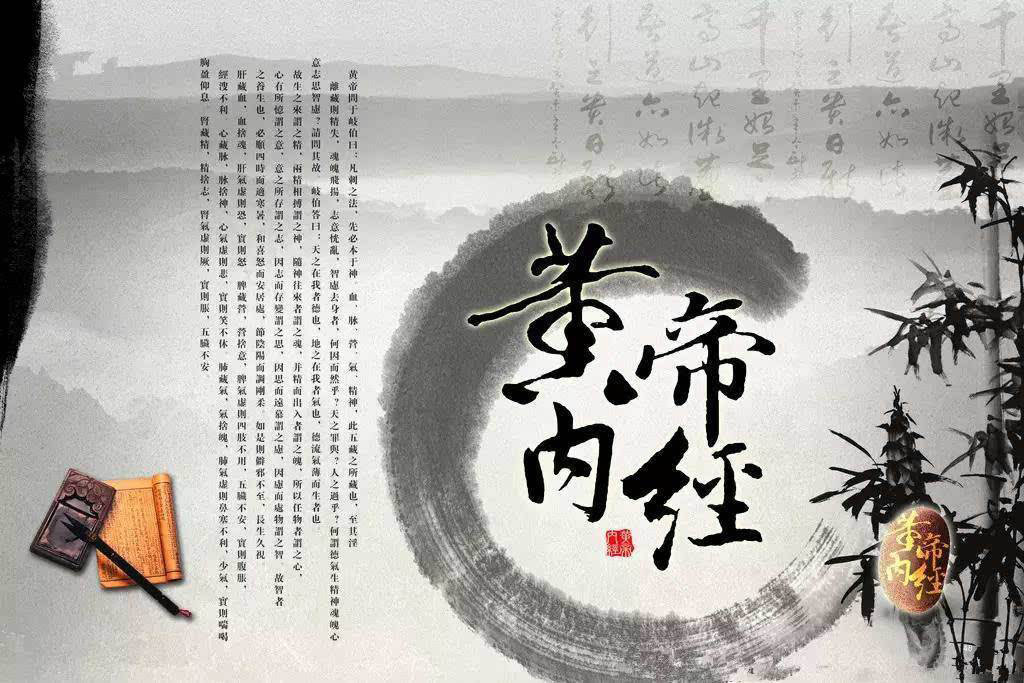 黃帝
内經
黃帝
内經
黃帝
内經
黃帝問于岐伯曰：凡刺之法，先必本于神　血、脉、營、氣、精神，此五藏之所藏也，至其淫
離藏則精失，魂魄飛揚，志意恍亂，智慮去身者，何因而然乎？天之罪與？人之過乎？何謂德氣生精神魂魄心
意志思智慮？請問其故　岐伯答曰：天之在我者德也，地之在我者氣也，德流氣薄而生者也
故生之來謂之精，兩精相搏謂之神，隨神往來者謂之魂，并精而出入者謂之魄，所以任物者謂之心，
心有所憶謂之意，意之所存謂之志，因志而存變謂之思，因思而遠慕謂之慮，因慮而處物謂之智　故智者
之養生也，必順四時而適寒暑，和喜怒而安居處，節陰陽而調剛柔　如是則僻邪不至，長生久視
肝藏血，血捨魂，肝氣虛則恐，實則怒　脾藏營，營捨意，脾氣虛則四肢不用，五臟不安，實則腹脹，
經溲不利　心藏脉，脉捨神，心氣虛則悲，實則笑不休　肺藏氣，氣捨魄，肺氣虛則鼻塞不利，少氣，實則喘喝
胸盈仰息　腎藏精，精捨志，腎氣虛則厥，實則脹，五臟不安